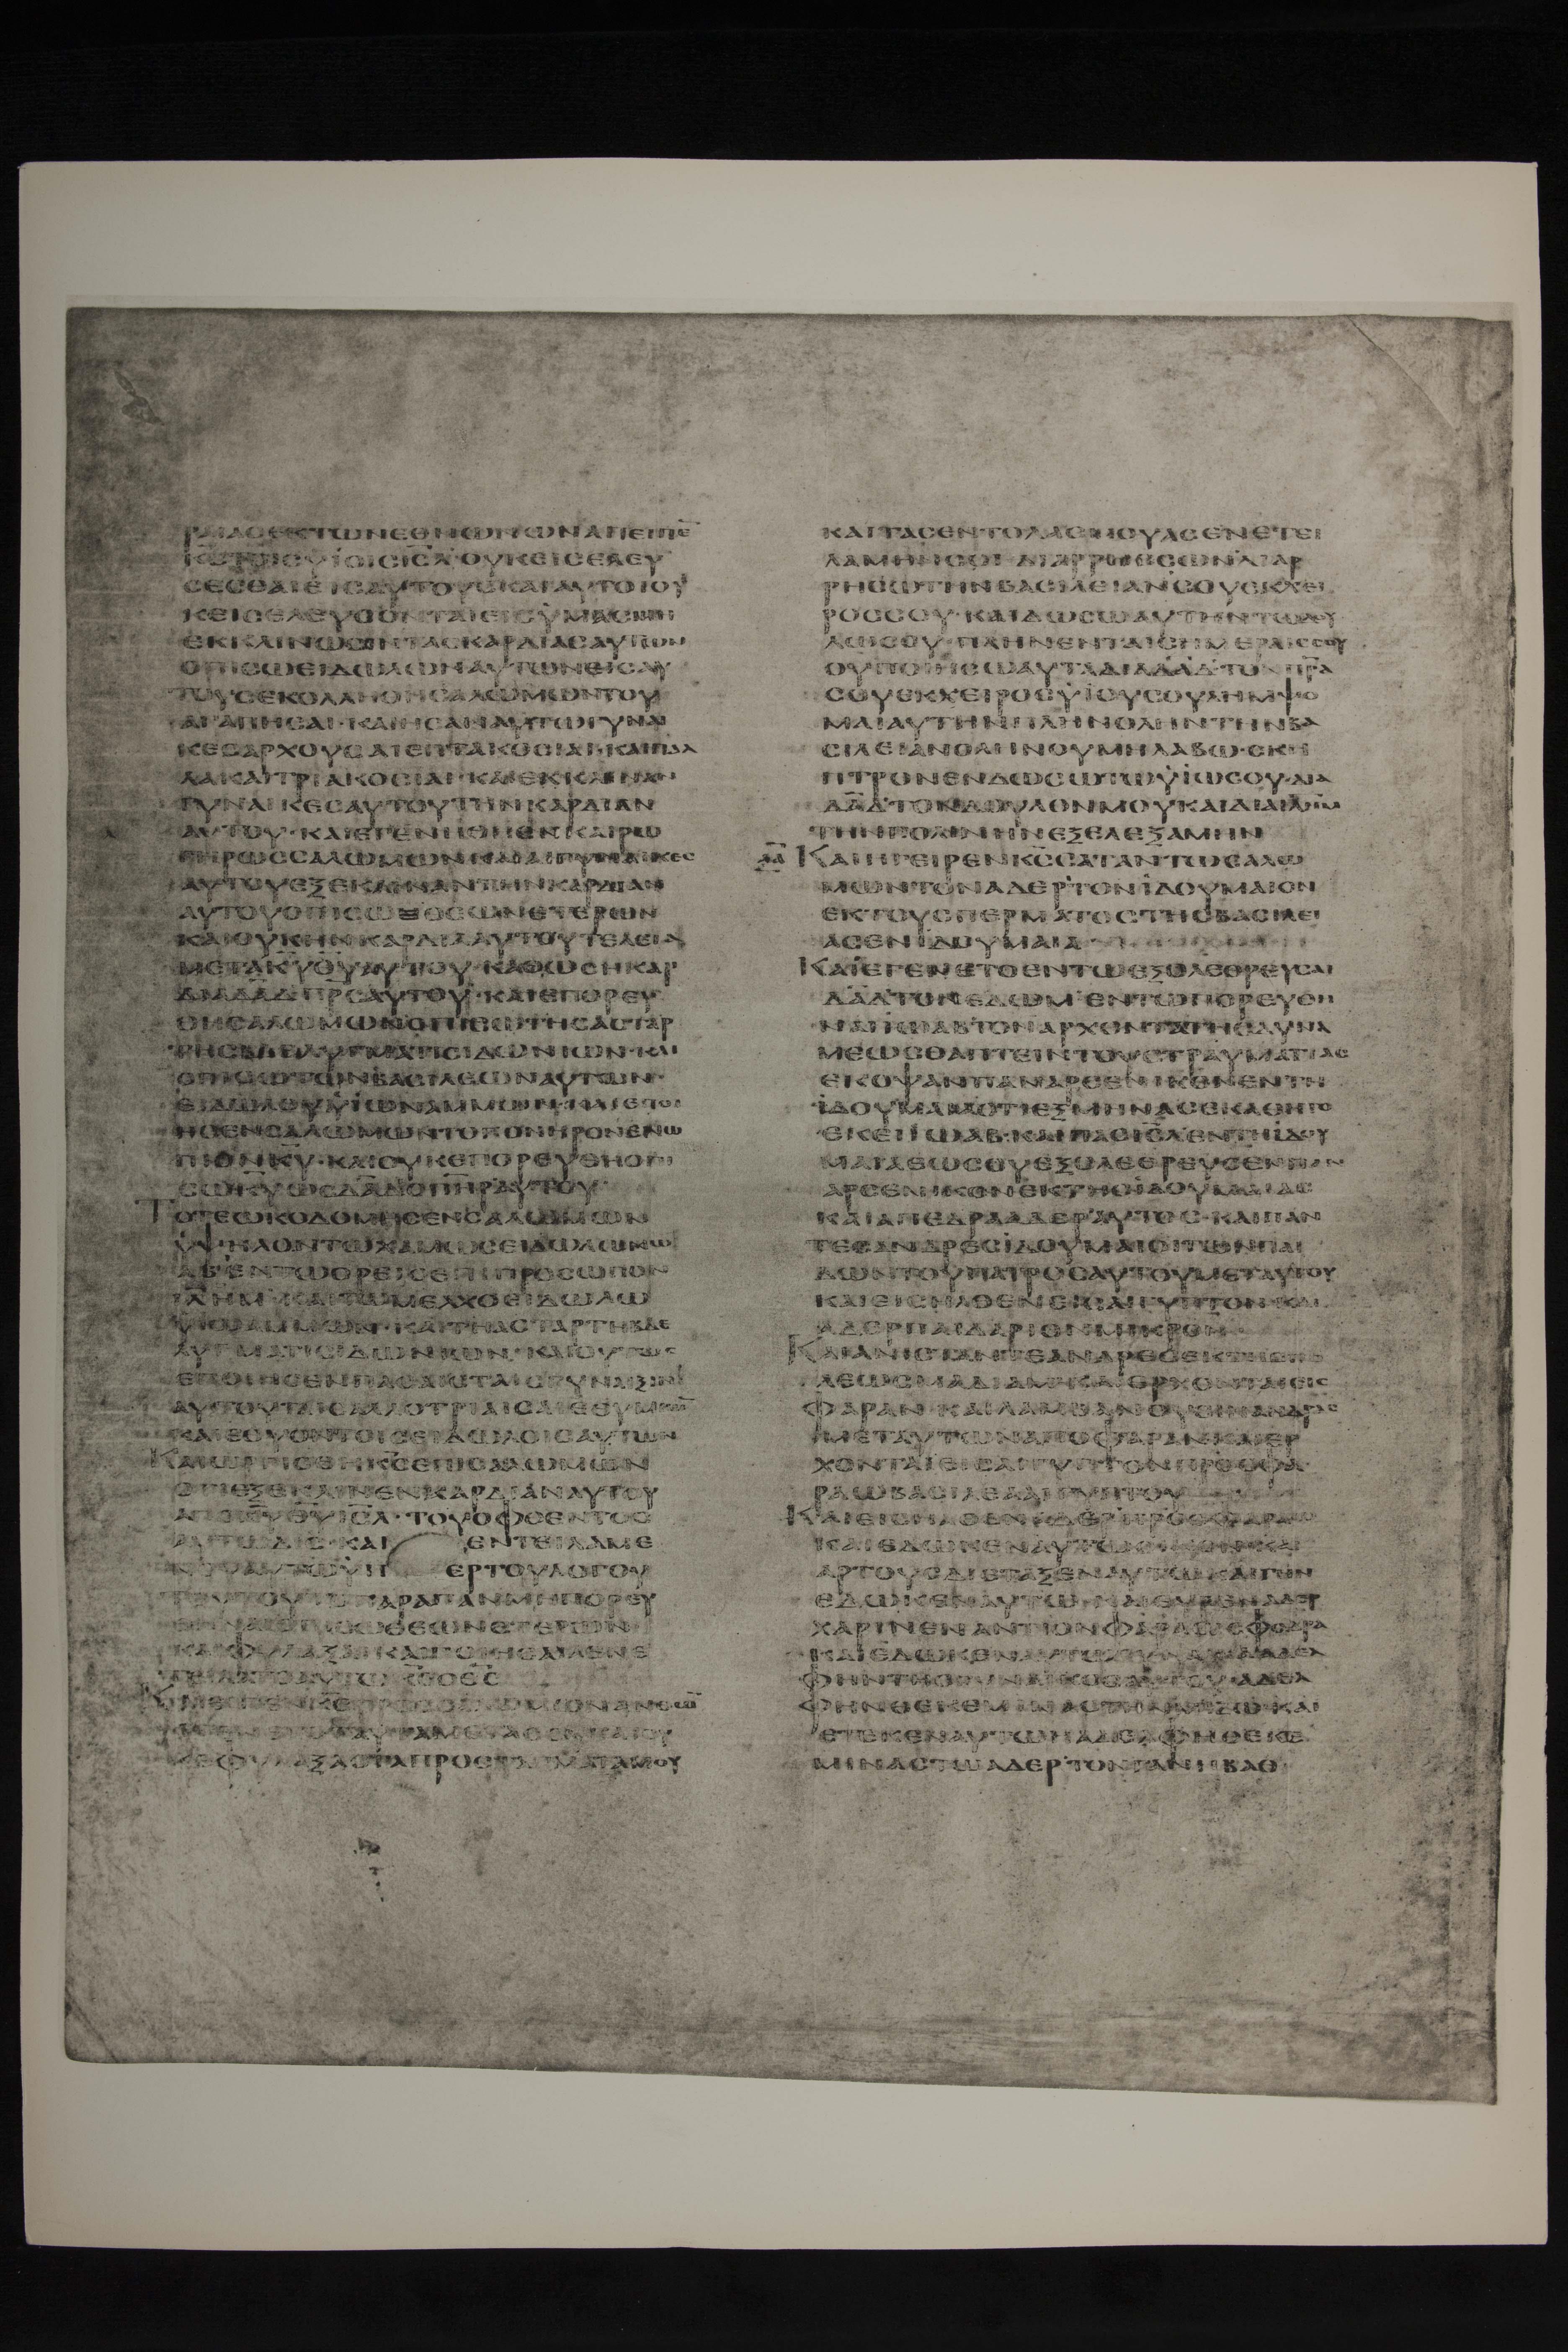 ΡΑΙΑΣ ΕΚ ΤΩΝ ΕΘΝΩΝ ΩΝ ΑΠΕΙΠΕ̅
Κ̅Σ̅ ΤΟΙΣ ΥΙΟΙΣ Ι̅Σ̅Λ̅ · ΟΥΚ ΕΙΣΕΛΕΥ
ΣΕΣΘΑΙ ΕΙΣ ΑΥΤΟΥΣ ΚΑΙ ΑΥΤΟΙ ΟΥ
Κ ΕΙΣΕΛΕΥΣΟΝΤΑΙ ΕΙΣ ΥΜΑΣ ΜΗ
ΕΚΚΛΙΝΩΣΙΝ ΤΑΣ ΚΑΡΔΙΑΣ ΑΥΤΩΝ
ΟΠΙΣΩ ΕΙΔΩΛΩΝ ΑΥΤΩΝ ΕΙΣ ΑΥ
ΤΟΥΣ ΕΚΟΛΛΗΘΗ ΣΑΛΩΜΩΝ ΤΟΥ
ΑΓΑΠΗΣΑΙ · ΚΑΙ ΗΣΑΝ ΑΥΤΩ ΓΥΝΑΙ
ΚΕΣ ΑΡΧΟΥΣΑΙ ΕΠΤΑΚΟΣΙΑΙ · ΚΑΙ ΠΑΛ
ΛΑΚΑΙ ΤΡΙΑΚΟΣΙΑΙ · ΚΑΙ ΕΚΚΛΙΝΑΝ
ΓΥΝΑΙΚΕΣ ΑΥΤΟΥ ΤΗΝ ΚΑΡΔΙΑΝ
ΑΥΤΟΥ · ΚΑΙ ΕΓΕΝΗΘΗ ΕΝ ΚΑΙΡΩ
ΓΗΡΩΣ ΣΑΛΩΜΩΝ ΚΑΙ ΑΙ ΓΥΝΑΙΚΕΣ
ΑΥΤΟΥ ΕΞΕΚΛΙΝΑΝ ΤΗΝ ΚΑΡΔΙΑΝ
ΑΥΤΟΥ ΟΠΙΣΩ ΘΕΩΝ ΕΤΕΡΩΝ
ΚΑΙ ΟΥΚ ΗΝ ΚΑΡΔΙΑ ΑΥΤΟΥ ΤΕΛΕΙΑ
ΜΕΤΑ Κ̅Υ̅ Θ̅Υ̅ ΑΥΤΟΥ · ΚΑΘΩΣ Η ΚΑΡ
ΔΙΑ Δ̅Α̅Δ̅ Π̅Ρ̅Σ̅ ΑΥΤΟΥ · ΚΑΙ ΕΠΟΡΕΥ
ΘΗ ΣΑΛΩΜΩΝ ΟΠΙΣΩ ΤΗΣ ΑΣΤΑΡ
ΤΗΣ ΒΔΕΛΥΓΜΑΤΙ ΣΙΔΩΝΙΩΝ · ΚΑΙ
ΟΠΙΣΩ ΤΩΝ ΒΑΣΙΛΕΩΝ ΑΥΤΩΝ ·
ΕΙΔΩΛΟΥ ΥΙΩΝ ΑΜΜΩΝ · ΚΑΙ ΕΠΟΙ
ΗΣΕΝ ΣΑΛΩΜΩΝ ΤΟ ΠΟΝΗΡΟΝ ΕΝΩ
ΠΙΟΝ Κ̅Υ̅ · ΚΑΙ ΟΥΚ ΕΠΟΡΕΥΘΗ ΟΠΙ
ΣΩ Κ̅Υ̅ ΩΣ Δ̅Α̅Δ̅ Ο Π̅Η̅Ρ̅ ΑΥΤΟΥ ·
ΤΟΤΕ ΩΚΟΔΟΜΗΣΕΝ ΣΑΛΩΜΩΝ
ΥΨΗΛΟΝ ΤΩ ΧΑΜΩΣ ΕΙΔΩΛΩ ΜΩ
ΑΒ ΕΝ ΤΩ ΟΡΕΙ Ο ΕΠΙ ΠΡΟΣΩΠΟΝ
Ι̅Λ̅Η̅Μ̅ · ΚΑΙ ΤΩ ΜΕΛΧΟ ΕΙΔΩΛΩ
ΥΙΩΝ ΑΜΜΩΝ · ΚΑΙ ΤΗ ΑΣΤΑΡΤΗ ΒΔΕ
ΛΥΓΜΑΤΙ ΣΙΔΩΝΙΩΝ · ΚΑΙ ΟΥΤΩΣ
ΕΠΟΙΗΣΕΝ ΠΑΣΑΙΣ ΤΑΙΣ ΓΥΝΑΙΞΙΝ
ΑΥΤΟΥ ΤΑΙΣ ΑΛΛΟΤΡΙΑΙΣ ΑΙ ΕΘΥΜΙΩ̅
ΚΑΙ ΕΘΥΟΝ ΤΟΙΣ ΕΙΔΩΛΟΙΣ ΑΥΤΩΝ
ΚΑΙ ΩΡΓΙΣΘΗ Κ̅Σ̅ ΕΠΙ ΣΑΛΩΜΩΝ
ΟΤΙ ΕΞΕΚΛΙΝΕΝ ΚΑΡΔΙΑΝ ΑΥΤΟΥ
ΑΠΟ Κ̅Υ̅ Θ̅Υ̅ Ι̅Σ̅Λ̅ · ΤΟΥ ΟΦΘΕΝΤΟΣ
ΑΥΤΩ ΔΙΣ · ΚΑΙ ΕΝΤΕΙΛΑΜΕ
ΝΟΥ ΑΥΤΩ ΥΠΕΡ ΤΟΥ ΛΟΓΟΥ
ΤΟΥΤΟΥ ΤΟ ΠΑΡΑΠΑΝ ΜΗ ΠΟΡΕΥ
ΘΗΝΑΙ ΟΠΙΣΩ ΘΕΩΝ ΕΤΕΡΩΝ
ΚΑΙ ΦΥΛΑΞΑΙ ΚΑΙ ΠΟΙΗΣΑΙ Α ΕΝΕ
ΤΕΙΛΑΤΟ ΑΥΤΩ Κ̅Σ̅ Ο Θ̅Σ̅
ΚΑΙ ΕΙΠΕΝ Κ̅Σ̅ ΠΡΟΣ ΣΑΛΩΜΩΝ ΑΝΘ Ω̅
ΕΓΕΝΕΤΟ ΤΑΥΤΑ ΜΕΤΑ ΣΟΥ ΚΑΙ ΟΥ
Κ ΕΦΥΛΑΞΑΣ ΤΑ ΠΡΟΣΤΑΓΜΑΤΑ ΜΟΥ
ΚΑΙ ΤΑΣ ΕΝΤΟΛΑΣ ΜΟΥ ΑΣ ΕΝΕΤΕΙ
ΛΑΜΗΝ ΣΟΙ · ΔΙΑΡΡΗΣΣΩΝ ΔΙΑΡ
ΡΗΞΩ ΤΗΝ ΒΑΣΙΛΕΙΑΝ ΣΟΥ ΕΚ ΧΕΙ
ΡΟΣ ΣΟΥ · ΚΑΙ ΔΩΣΩ ΑΥΤΗΝ ΤΩ ΔΟΥ
ΛΩ ΣΟΥ · ΠΛΗΝ ΕΝ ΤΑΙΣ ΗΜΕΡΑΙΣ ΣΟΥ
ΟΥ ΠΟΙΗΣΩ ΑΥΤΑ ΔΙΑ Δ̅Α̅Δ̅ ΤΟΝ Π̅Ρ̅Α̅
ΣΟΥ ΕΚ ΧΕΙΡΟΣ ΥΙΟΥ ΣΟΥ ΛΗΜΨΟ
ΜΑΙ ΑΥΤΗΝ ΠΛΗΝ ΟΛΗΝ ΤΗΝ ΒΑ
ΣΙΛΕΙΑΝ ΟΛΗΝ ΟΥ ΜΗ ΛΑΒΩ · ΣΚΗ
ΠΤΡΟΝ ΕΝ ΔΩΣΩ ΤΩ ΥΙΩ ΣΟΥ · ΔΙΑ
Δ̅Α̅Δ̅ ΤΟΝ ΔΟΥΛΟΝ ΜΟΥ ΚΑΙ ΔΙΑ Ι̅Λ̅Η̅Μ̅
ΤΗΝ ΠΟΛΙΝ ΗΝ ΕΞΕΛΕΞΑΜΗΝ
ΚΑΙ ΗΓΕΙΡΕΝ Κ̅Σ̅ ΣΑΤΑΝ ΤΩ ΣΑΛΩ
ΜΩΝ ΤΟΝ ΑΔΕΡ ΤΟΝ ΙΔΟΥΜΑΙΟΝ
ΕΚ ΤΟΥ ΣΠΕΡΜΑΤΟΣ ΤΗΣ ΒΑΣΙΛΕΙ
ΑΣ ΕΝ ΙΔΟΥΜΑΙΑ
ΚΑΙ ΕΓΕΝΕΤΟ ΕΝ ΤΩ ΕΞΟΛΕΘΡΕΥΣΑΙ
Δ̅Α̅Δ̅ ΤΟΝ ΕΔΩΜ ΕΝ ΤΩ ΠΟΡΕΥΘΗ
ΝΑΙ ΙΩΑΒ ΤΟΝ ΑΡΧΟΝΤΑ ΤΗΣ ΔΥΝΑ
ΜΕΩΣ ΘΑΠΤΕΙΝ ΤΟΥΣ ΤΡΑΥΜΑΤΙΑΣ
ΕΚΟΨΑΝ ΠΑΝ ΑΡΣΕΝΙΚΟΝ ΕΝ ΤΗ
ΙΔΟΥΜΑΙΑ ΟΤΙ ΕΞ ΜΗΝΑΣ ΕΚΑΘΗΤΟ
ΕΚΕΙ ΙΩΑΒ · ΚΑΙ ΠΑΣ Ι̅Σ̅Λ̅ ΕΝ ΤΗ ΙΔΟΥ
ΜΑΙΑ ΕΩΣ ΟΥ ΕΞΟΛΕΘΡΕΥΣΕΝ ΠΑΝ
ΑΡΣΕΝΙΚΟΝ ΕΚ ΤΗΣ ΙΔΟΥΜΑΙΑΣ
ΚΑΙ ΑΠΕΔΡΑ ΑΔΕΡ ΑΥΤΟΣ · ΚΑΙ ΠΑΝ
ΤΕΣ ΑΝΔΡΕΣ ΙΔΟΥΜΑΙΟΙ ΤΩΝ ΠΑΙ
ΔΩΝ ΤΟΥ ΠΑΤΡΟΣ ΑΥΤΟΥ ΜΕΤ ΑΥΤΟΥ
ΚΑΙ ΕΙΣΗΛΘΕΝ ΕΙΣ ΑΙΓΥΠΤΟΝ ΚΑΙ
ΑΔΕΡ ΠΑΙΔΑΡΙΟΝ ΜΙΚΡΟΝ
ΚΑΙ ΑΝΙΣΤΑΝΤΕ ΑΝΔΡΕΣ ΕΚ ΤΗΣ ΠΟ
ΛΕΩΣ ΜΑΔΙΑΜ · ΚΑΙ ΕΡΧΟΝΤΑΙ ΕΙΣ
ΦΑΡΑΝ · ΚΑΙ ΛΑΜΒΑΝΟΥΣΙΝ ΑΝΔΡΑΣ
ΜΕΤ ΑΥΤΩΝ ΑΠΟ ΦΑΡΑΝ · ΚΑΙ ΕΡ
ΧΟΝΤΑΙ ΕΙΣ ΑΙΓΥΠΤΟΝ ΠΡΟΣ ΦΑ
ΡΑΩ ΒΑΣΙΛΕΑ ΑΙΓΥΠΤΟΥ
ΚΑΙ ΕΙΣΗΛΘΕΝ ΑΔΕΡ ΠΡΟΣ ΦΑΡΑΩ
ΚΑΙ ΕΔΩΚΕΝ ΑΥΤΩ ΟΙΚΟΝ ΚΑΙ
ΑΡΤΟΥΣ ΔΙΕΤΑΞΕΝ ΑΥΤΩ ΚΑΙ ΓΗΝ
ΕΔΩΚΕΝ ΑΥΤΩ · ΚΑΙ ΕΥΡΕΝ ΑΔΕΡ
ΧΑΡΙΝ ΕΝΑΝΤΙΟΝ ΦΑΡΑΩ ΣΦΟΔΡΑ
ΚΑΙ ΕΔΩΚΕΝ ΑΥΤΩ ΓΥΝΑΙΚΑ ΑΔΕΛ
ΦΗΝ ΤΗΣ ΓΥΝΑΙΚΟΣ ΑΥΤΟΥ · ΑΔΕΛ
ΦΗΝ ΘΕΚΕΜΙΝΑΣ ΤΗΝ ΜΕΙΖΩ · ΚΑΙ
ΕΤΕΚΕΝ ΑΥΤΩ Η ΑΔΕΛΦΗ ΘΕΚΕ
ΜΙΝΑΣ ΤΩ ΑΔΕΡ ΤΟΝ ΓΑΝΗΒΑΘ